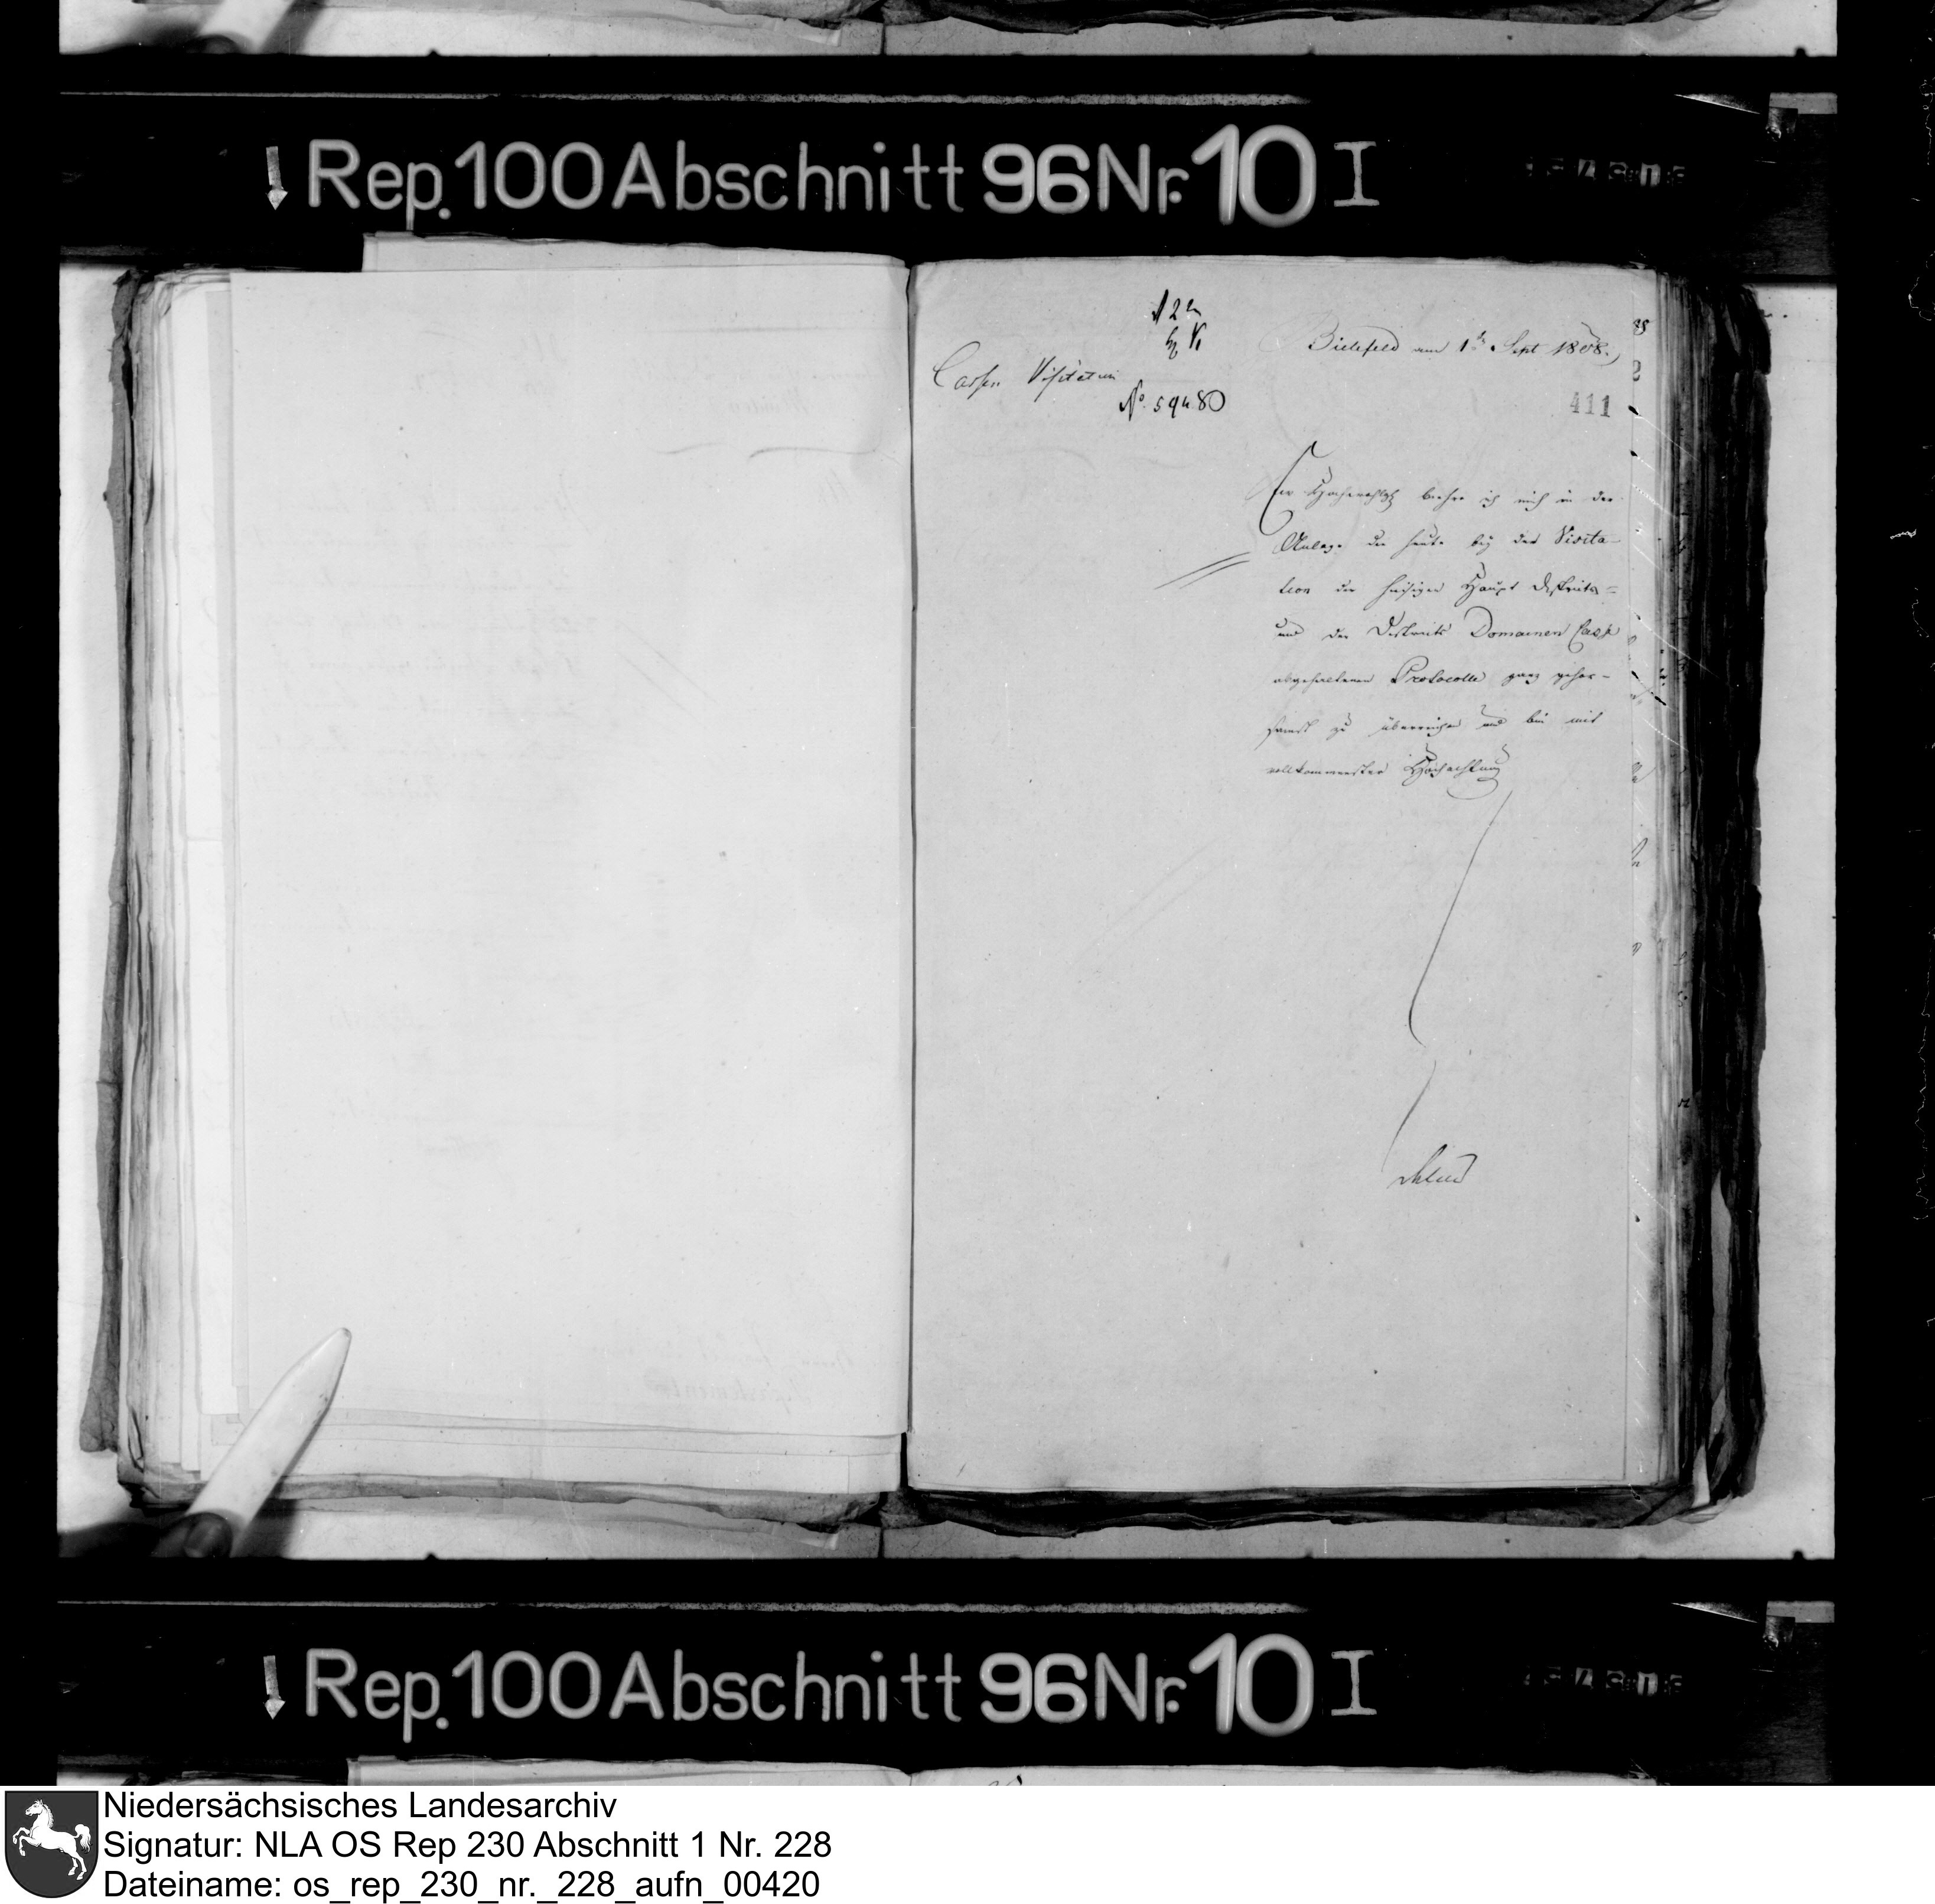 Rep. 100 Abschnitt 96 Nr. 10 I
Bielefeld am 1ten Sept 1808.
Cassen Visitation
No. 59480
411
Ew Hochwohlg beehre ich mich in der
Anlage die heute bey der Visita-
tion der hiesigen Haupt Distrikts-
und der Distrikts Domainen Casse
abgehaltenen Protocolle ganz gehor-
samst zu überreichen und bin mit
vollkommenster Hochachtung
Rep. 100 Abschnitt 96 Nr. 10 I
Niedersächsisches Landesarchiv
Signatur: NLA OS Rep 230 Abschnitt 1 Nr. 228
Dateiname: os_rep_230_nr._228_aufn_00420